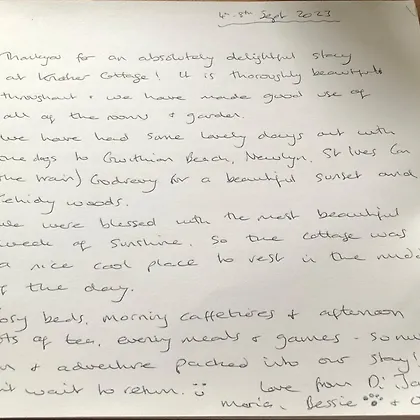 4th-8th Sept 2023
Thankyou for an absolutely delightful stay
at Kindher Cottage! It is thoroughly beautiful
throughout & we have made good use of
all of the rooms & garden.
We have had some lovely days out with
the dogs to Gwithian Beach, Newlyn, St Ives (on
the train) Godrevy for a beautiful sunset and
Tehidy woods.
We were blessed with the most beautiful
week of sunshine. So the cottage was
a nice cool place to rest in the midd
of the day.
Cosy beds, morning caffetieres & afternoon
pots of tea, evening meals & games - so mu
& adventure packed into our stay!
wait to return.
Love from Di
Maria, Bessie &